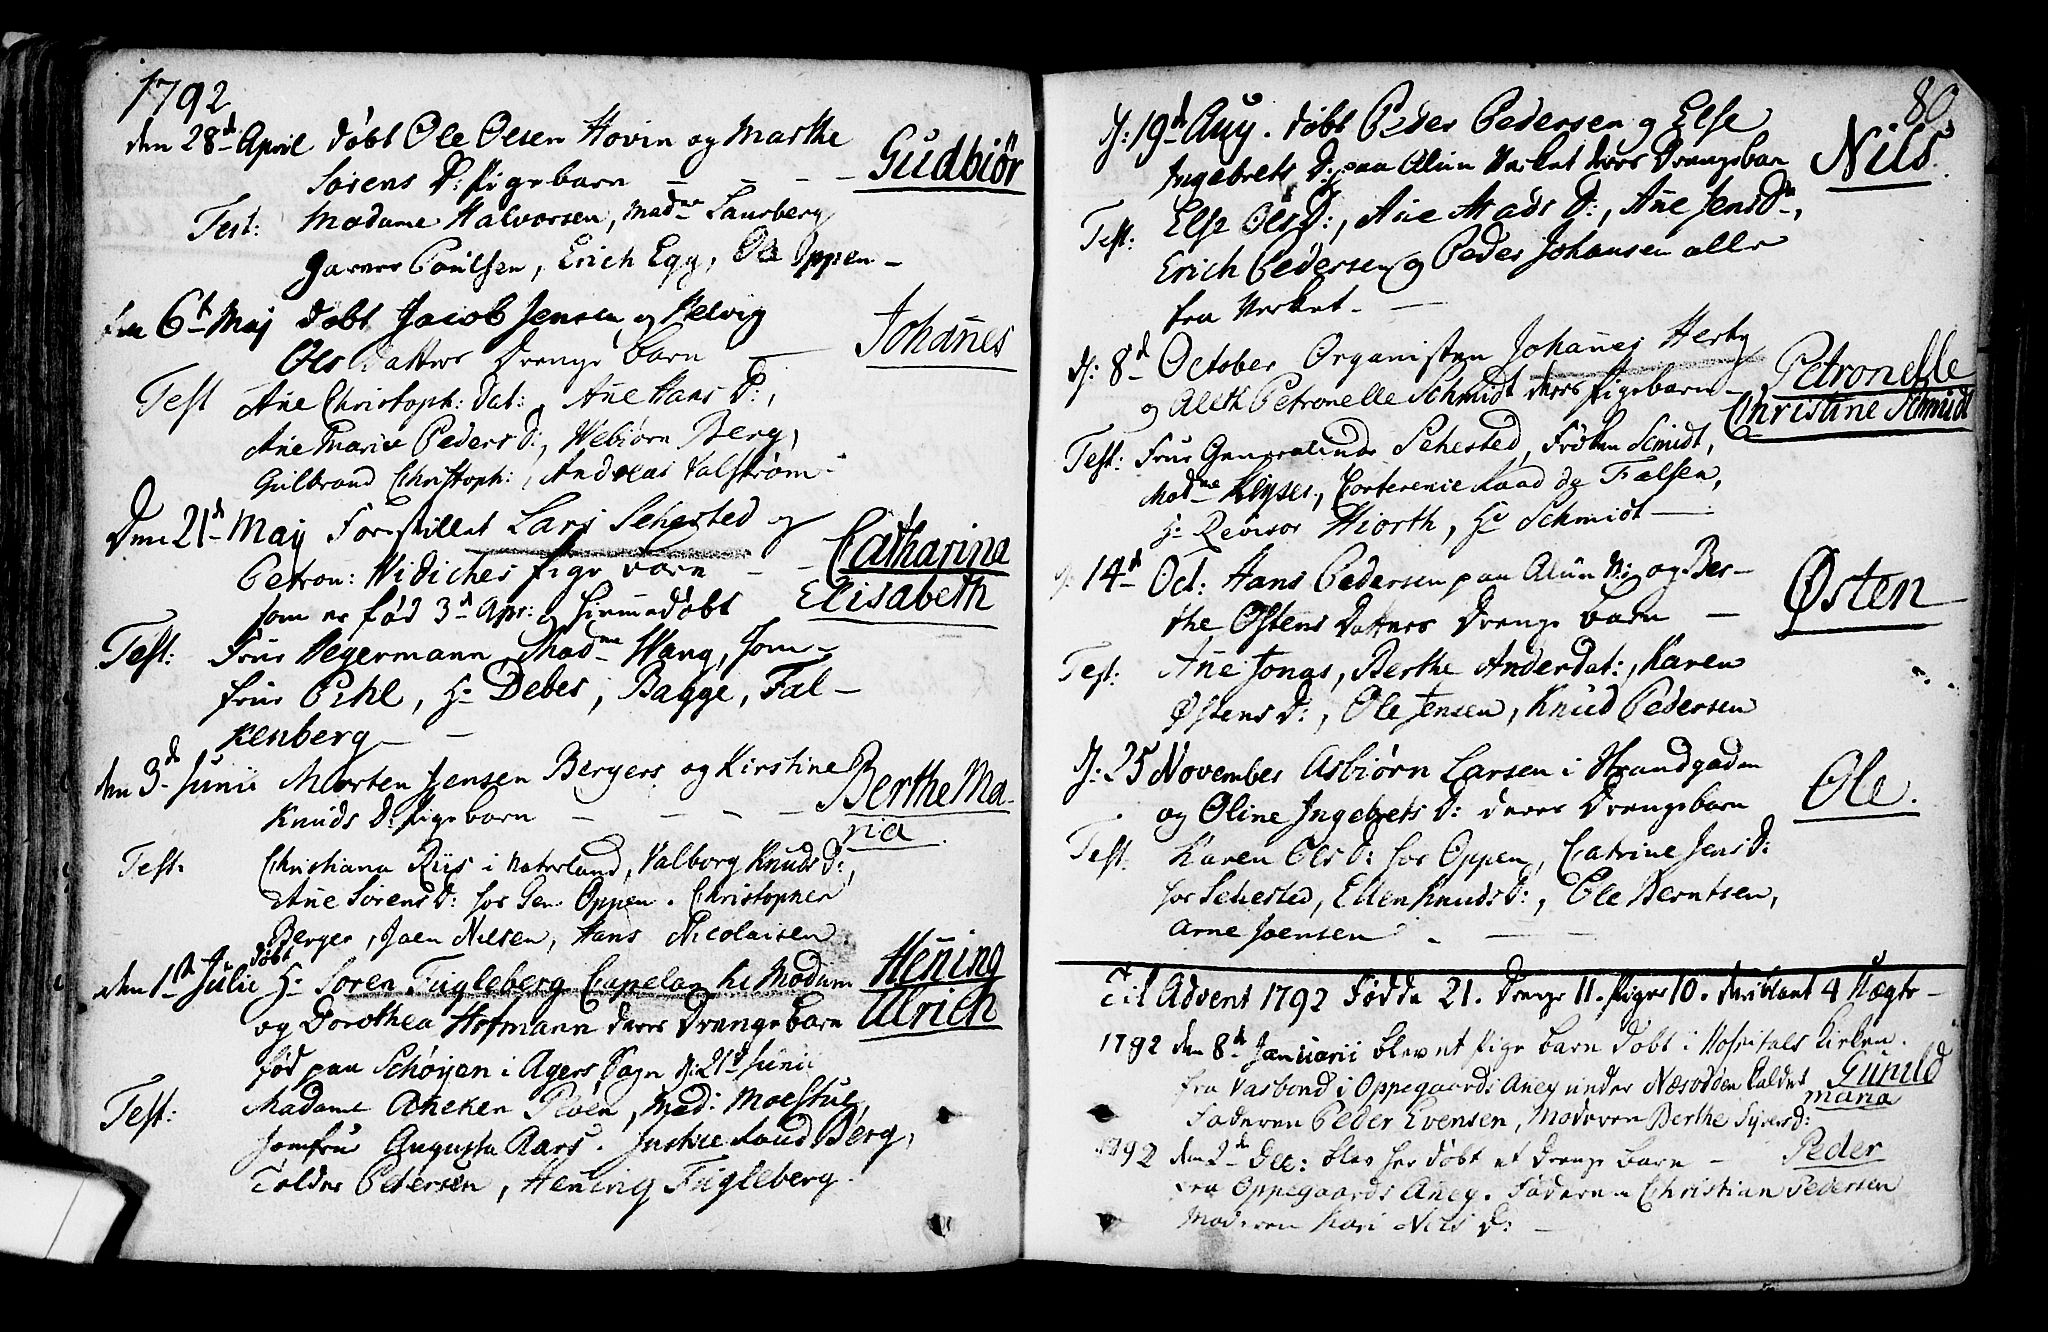 1792
den 28d April døbt Ole Olsen Hovin og Marthe
Sørens D: Pigebarn — — — — Gudbiør
Test: Madame Halvorsen, Madme Lansberg
Poulsen, Erich Egg, Ole Oppen —
den 6t Maj døbt Jacob Jensen og Helvig
Ols Datters Drenge barn — Johañes
Test Añe Christoph: Dat:, Añe Hans D:,
Ane Marie Peders D:, Webiørn Berg,
Gulbrand Christoph:, Andreas Valstrøm.
Den 21d May Forestillet Lars Sehested og
Petron: Widiches Pige barn — — Catharina
som er fød 3d Apr: hiemmedøbt Elisabeth
Test: Frue Wegermann, Madme Wang, Jom-
frue Pihl, Hr Debes, Bagge, Fal-
kenberg — —
den 3d Junii Morten Jensen Bergers og Kirstine
Knuds D: Pigebarn — — — — Berthe Ma-
ria
Test: Christiana Riis i Vaterland, Valborg Knuds D:,
Añe Sørens D: hos Gen. Oppen. Christopher
Berger, Joen Nilsen, Hans Nicolaisen
døbt
den 1te Julii Hr Søren Fugleberg Capelan til Modum Hening
og Dorothea Hofmann deres Drenge barn Ulrich
fød paa Schøyen i Agers Sogn d: 21d Junii
Test: Madame Aneken Ploen, Mad: Moestue,
Jomfrue Augusta Aars. Justice Raad Berg,
Tolder Petersen, Hening Fugleberg.
80
d: 19d Aug. døbt Peder Pedersen og Else
Ingebrets D: paa Alun Verket deres Drengebarn Nils.
Test: Else Ols D:, Añe Mads D:, Añe Jens D:,
Erich Pedersen og Peder Johansen alle
fra Verket. —
d: 8d October Organisten Johañes Herby
og Aleth Petronelle Schmidt deres Pigebarn — Petronelle
Christine Schmidt
Test: Frue Generalinde Sehested, Frøken Scmidt,
Madme Klyser, Conference Raad de Falsen,
Hr Revisor Hiorth, Hr Schmidt —
d: 14d Oct: Hans Pedersen paa Alun V: og Ber-
the Østens Datters Drenge barn — Østen
Test: Añe Jonas, Berthe Anderdat:, Karen
Østens D:, Ole Jensen, Knud Pedersen
d: 25 November Asbiørn Larsen i Strandgaden
og Oline Ingebrets D: deres Drengebarn Ole.
Test. Karen Ols D: hos Oppen, Catrine Jens D:
hos Sehested, Ellen Knuds D:, Ole Berntsen,
Arne Joensen — —
Til Advent 1792 Fødde 21. Drenge 11. Piger 10. deriblant 4 Uægte —
1792 den 8de Januarii blev et Pige barn døbt i Hospitals Kirken.
fra i Oppegaards Aney under Næsodden kaldet Gunild
Maria
Faderen Peder Evensen, Moderen Berthe Siversd:
1792 den 2d Dec: blev her døbt et Drenge barn — Peder
fra Oppegaards Aney. Faderen Christian Pedersen
Moderen Kari Nils D: —